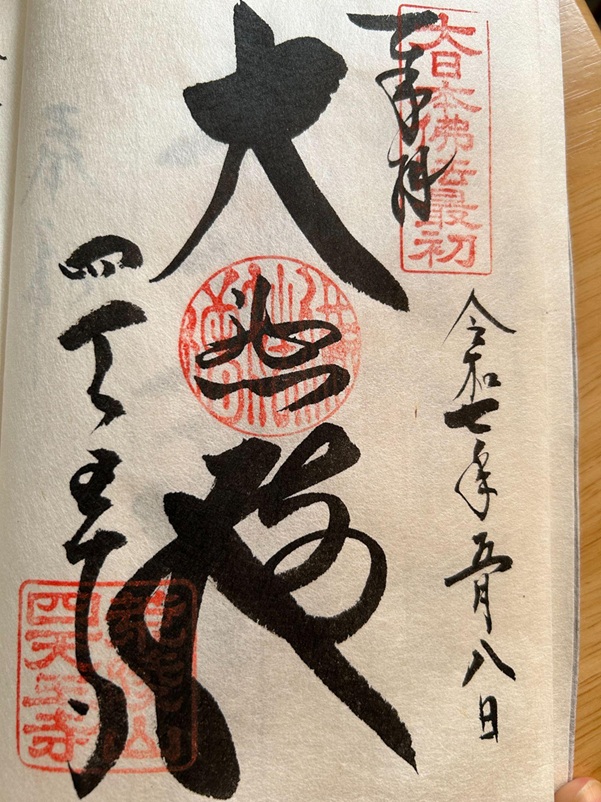 大日本佛法最初
奉拝
令和七年五月八日
大悲殿
四天王寺
荒陵山
四天王寺